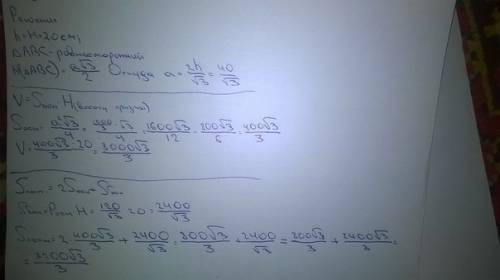 Решение
h=H=20см,
△ABC-равносторонний
h(△ABC)= a√3/2 Откуда a= 2h/√3 = 40/√3
V=Sосн H(высоты призмы)
Sосн= a²√3/4 = √3/4 = 1600√3/12 = 200√3/6 = 400√3/3
V= 400√3·20/3 = 8000√3/3
Sполн = 2Sосн+Sбок
Sбок=Pосн H= 120/√3 20 = 2400/√3
Sполн= 2· 400√3/3 + 2400/√3 = 800√3/3 + 2400/√3 = 800√3/3 + 2400√3/3 =
= 3200√3/3